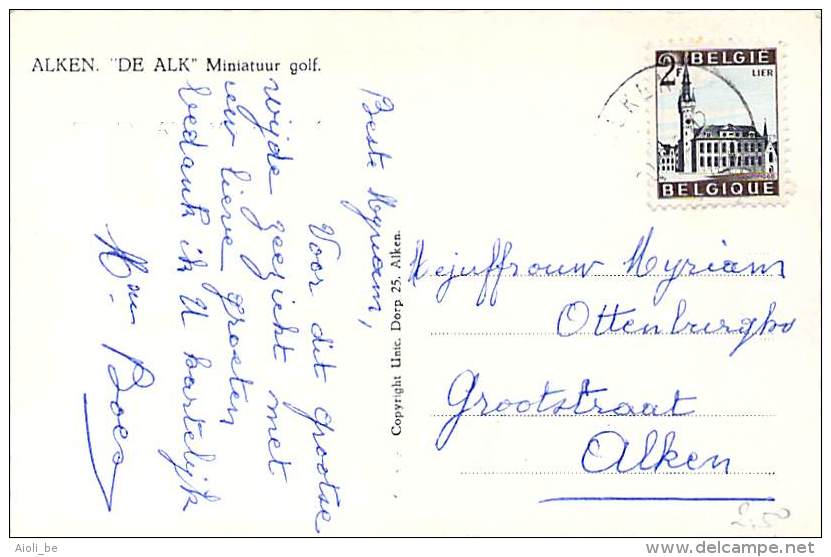 ALKEN. "DE ALK" Miniatuur golf.
Beste Myriam,
Voor dit grootse
wijde gezicht met
uw lieve groeten
bedank ik U hartelijk
Mm Boes
Copyright Unic. Dorp 25, Alken.
2F BELGIË
LIER
BELGIQUE
Mejuffrouw Myriam
Ottenburghs
Grootstraat
Alken
2.50
Aioli_be
http://www.delcampe.net